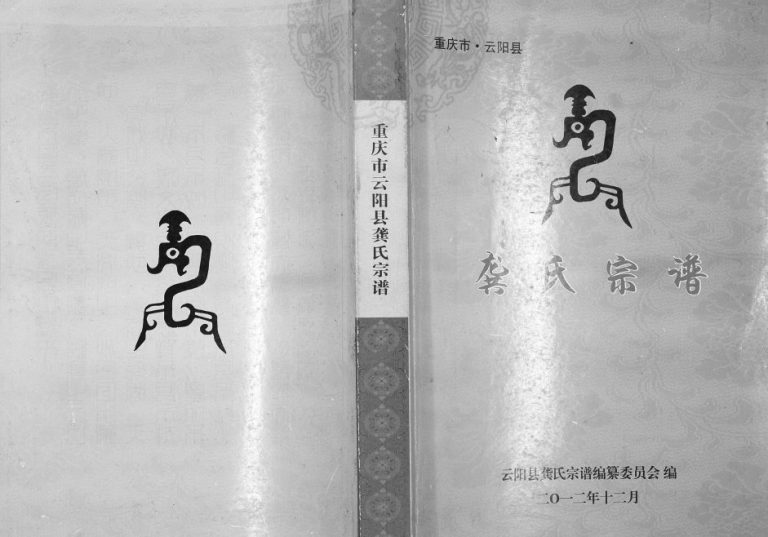 重庆市·云阳县
龚氏宗谱
云阳县龚氏宗谱编纂委员会 编
二〇一二年十二月
重庆市云阳县龚氏宗谱